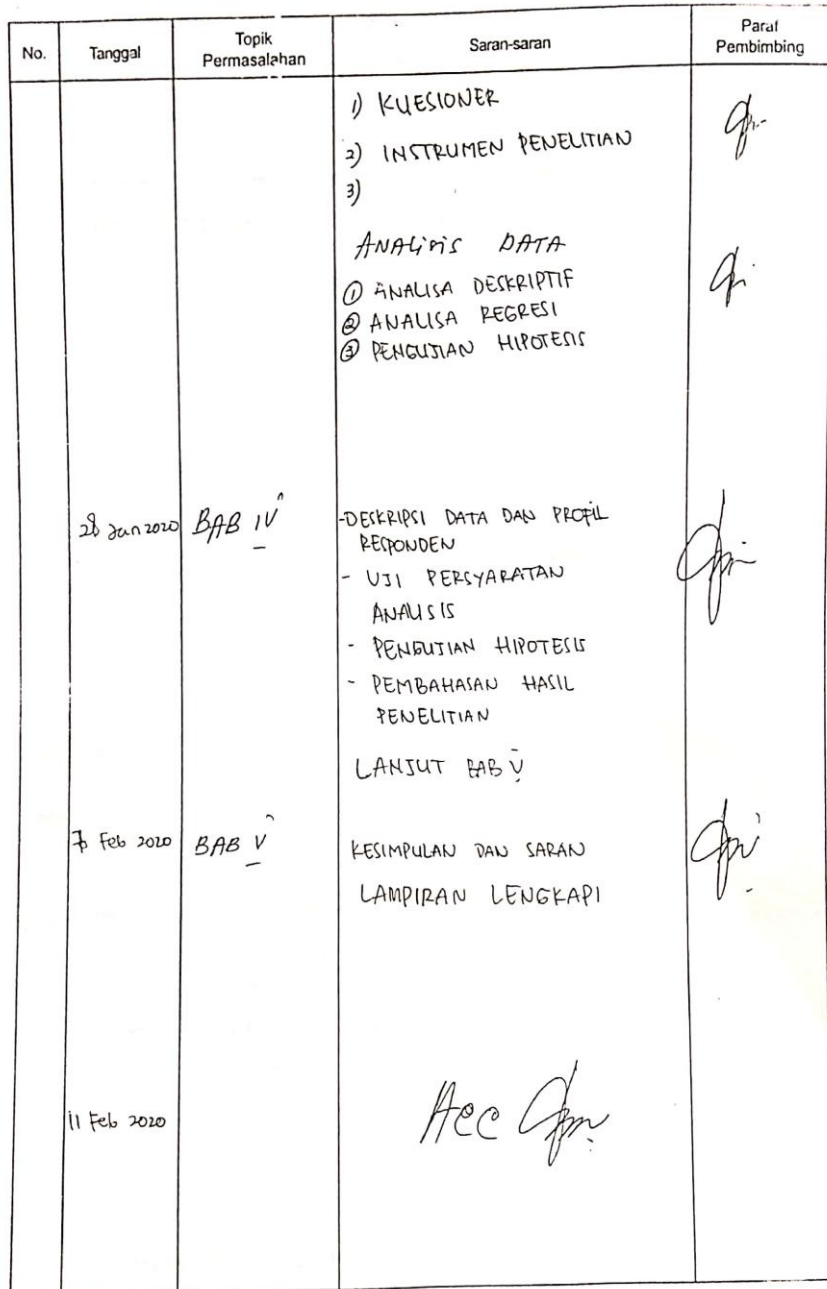 No.
Tanggal
Topik
Permasalahan
Saran-saran
Paraf
Pembimbing
1) KUESIONER
2) INSTRUMEN PENELITIAN
3)
ANALISIS DATA
① ANALISA DESKRIPTIF
② ANALISA REGRESI
③ PENGUJIAN HIPOTESIS
28 Jan 2020
BAB IV
-DESKRIPSI DATA DAN PROFIL
RESPONDEN
- UJI PERSYARATAN
ANALISIS
- PENGUJIAN HIPOTESIS
- PEMBAHASAN HASIL
PENELITIAN
LANJUT BAB V
Feb 2020
BAB V
KESIMPULAN DAN SARAN
LAMPIRAN LENGKAPI
11 Feb 2020
Acc